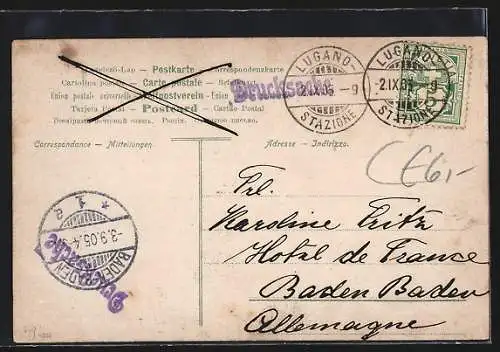 Levelező-Lap — Postkarte — Correspondenzkarte
Cartolina postale — Carte postale — Brefkort
Union postale universelle — Weltpostverein — Dopisnice
Tarjeta Postal — Postcard — Cartão Postal
Drucksache
LUGANO-
-2.IX.05.-9
STAZIONE
LUGANO-
-2.IX.05.-9
STAZIONE
Correspondance — Mitteilungen
Adresse — Indirizzo.
€6,-
* 1 e
-3.9.05.4-
BADEN-BADEN
Drucksache
Frl.
Karoline Fritz
Hotel de France
Baden Baden
Allemagne